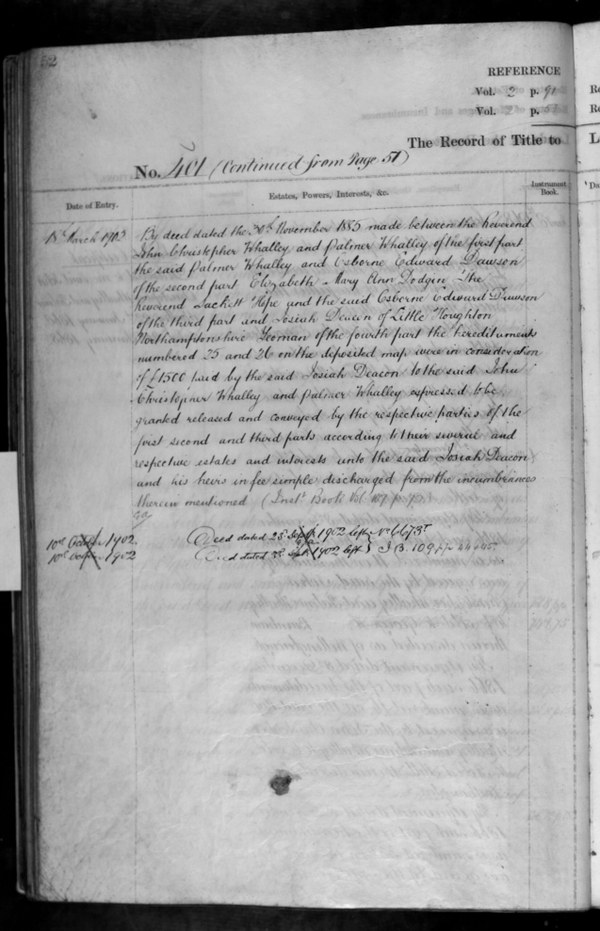 52
REFERENCE
Vol. 2 p. 91
Vol. 2 p.
The Record of Title to
No. 401 (Continued from Page 51)
Date of Entry.
Estates, Powers, Interests, &c.
Instrument Book.
March 1903
By deed dated the 30th November 1885 made between the Reverend
John Christopher Whalley and Palmer Whalley of the first part
the said Palmer Whalley and Osborne Edward Dawson
of the second part Elizabeth Mary Ann Dodgin The
Reverend Lackett Hope and the said Osborne Edward Dawson
of the third part and Josiah Deacon of Little Houghton
Northamptonshire Yeoman of the fourth part the hereditaments
numbered 25 and 26 on the deposited map were in consideration
of £1500 paid by the said Josiah Deacon to the said John
Christopher Whalley and Palmer Whalley expressed to be
granted released and conveyed by the respective parties of the
first second and third parts according to their several and
respective estates and interests unto the said Josiah Deacon
and his heirs in fee simple discharged from the incumbrances
therein mentioned (Inst. Book Vol 107 p.
10th October 1902
Deed dated 23rd Sept 1902 left
10th October 1902
Deed dated Sept 1902 left I B. 109 pp
Re
Re
L
Da